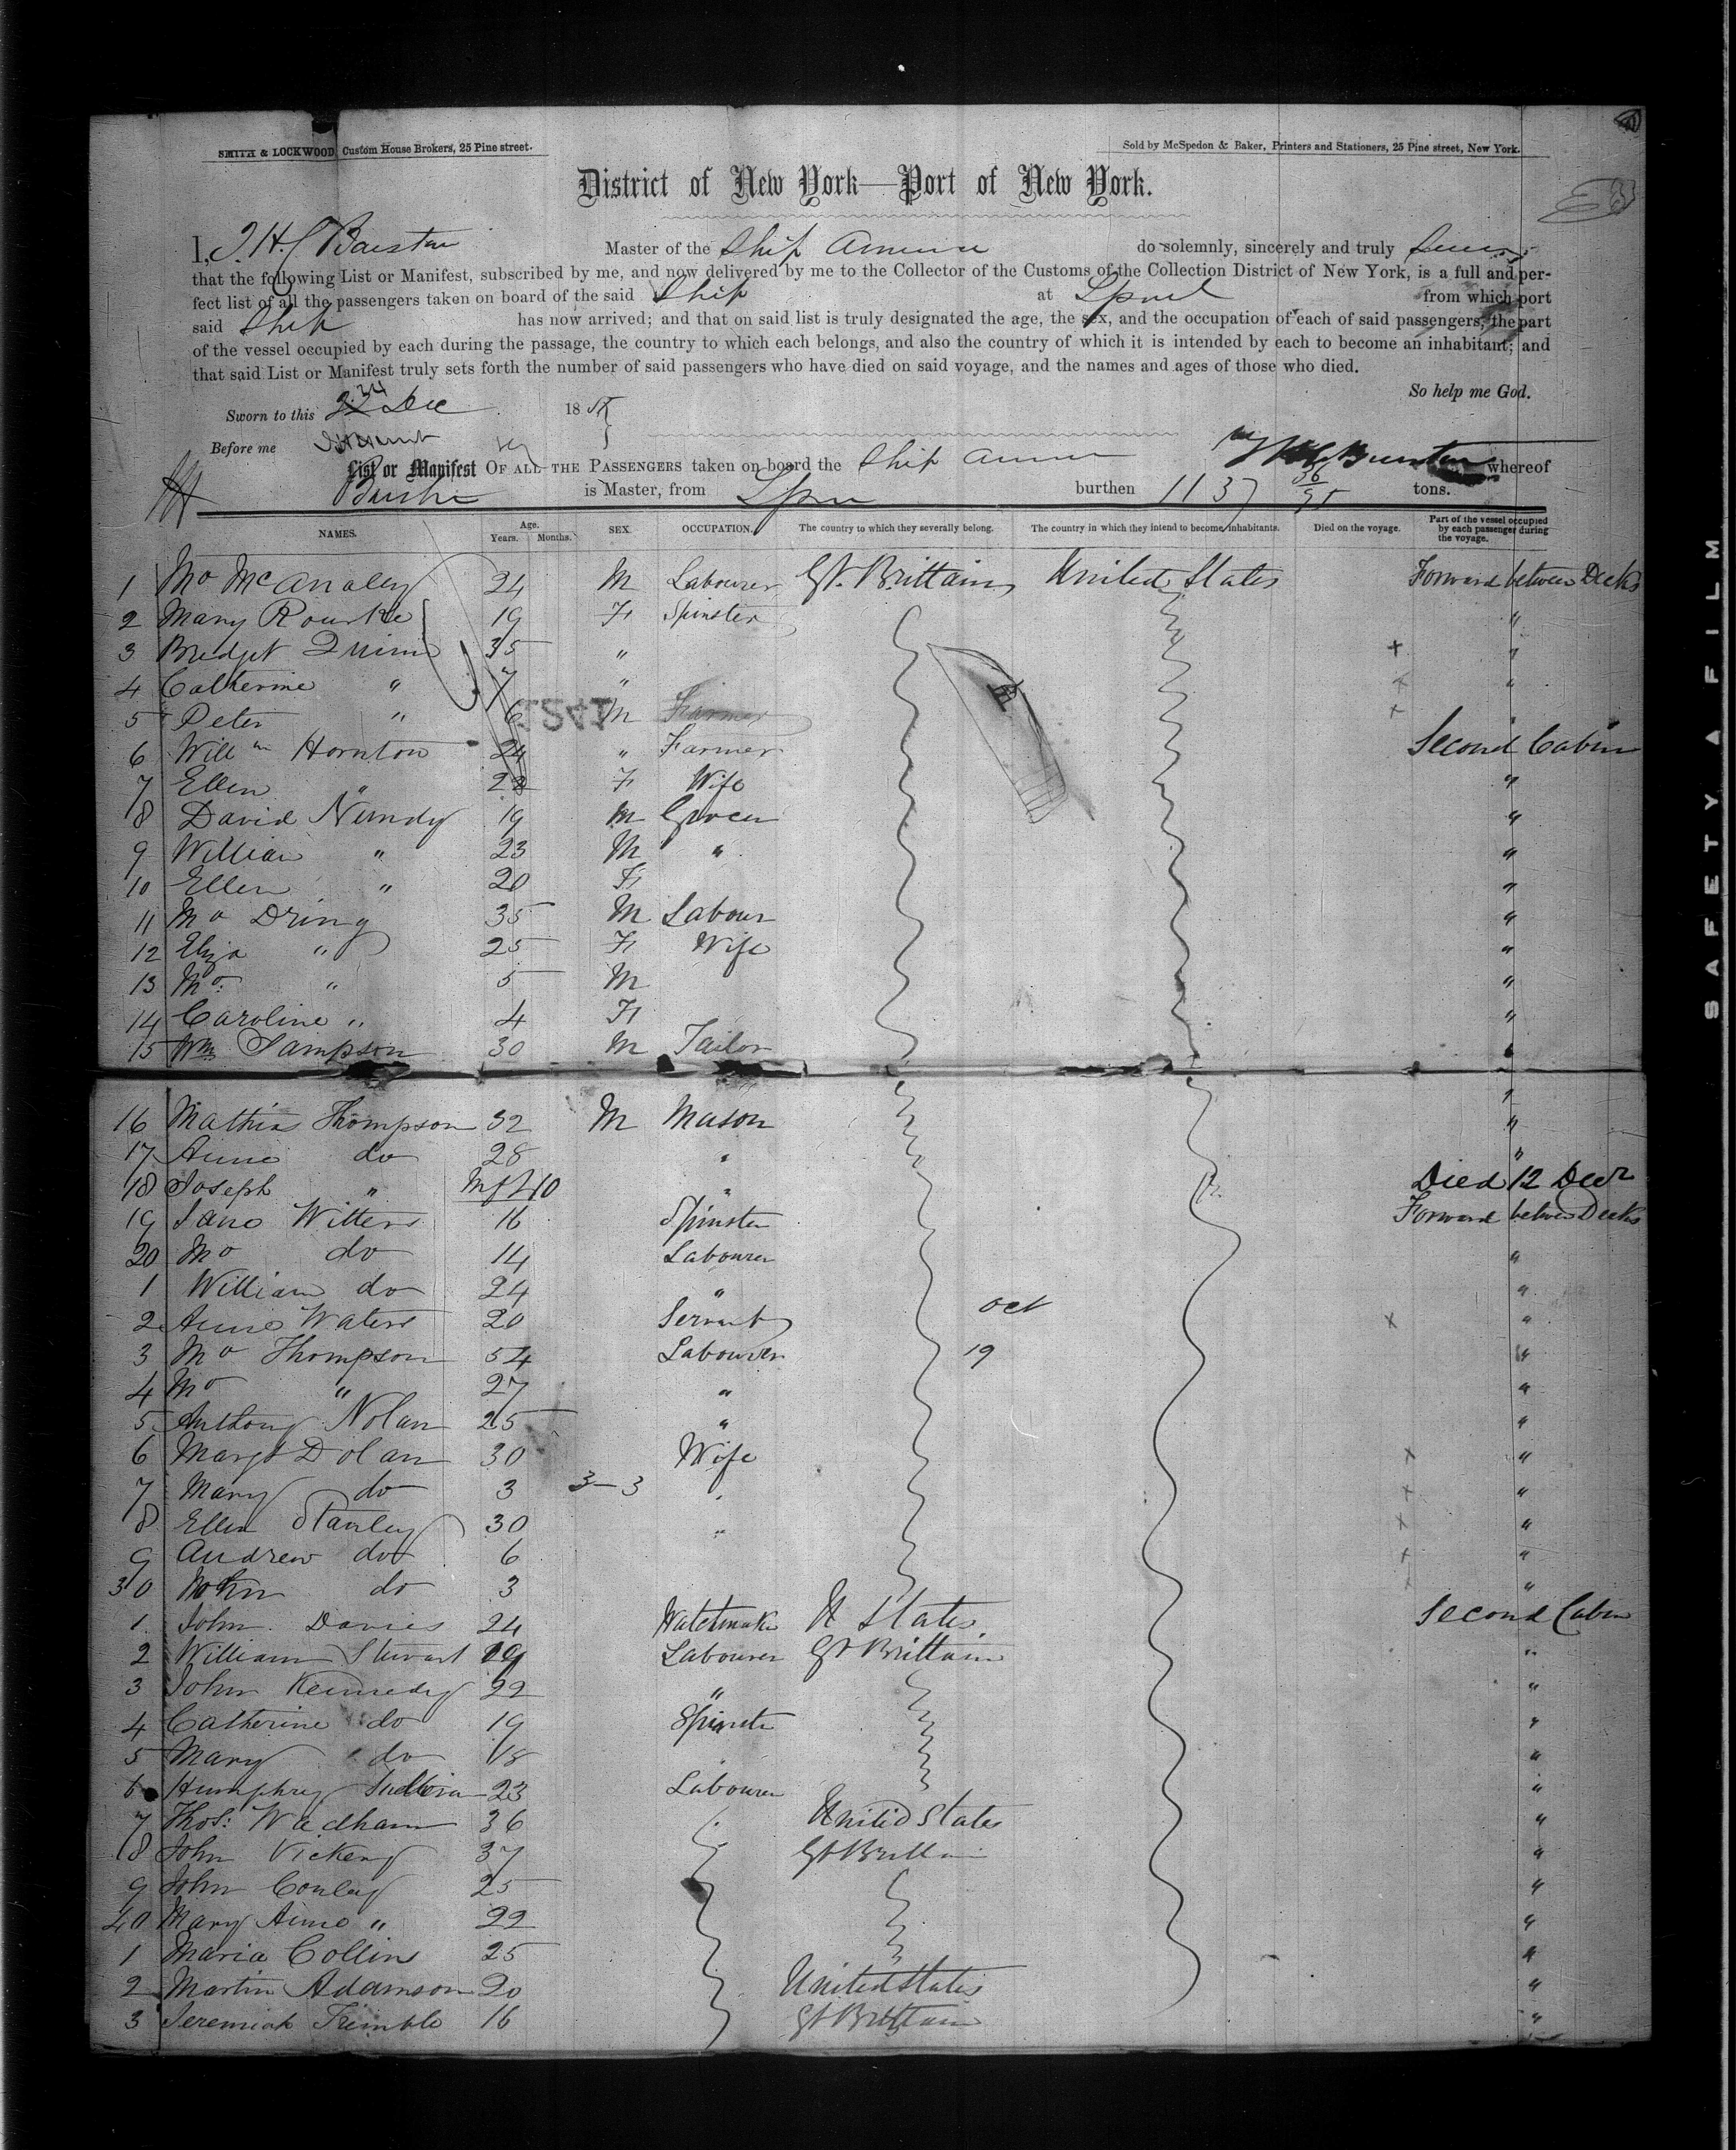 SMITH & LOCKWOOD, Custom House Brokers, 25 Pine street.
Sold by McSpedon & Baker, Printers and Stationers, 25 Pine street, New York.
District of New York—Port of New York.
I, Master of the Ship do solemnly, sincerely and truly
that the following List or Manifest, subscribed by me, and now delivered by me to the Collector of the Customs of the Collection District of New York, is a full and per-
fect list of all the passengers taken on board of the said Ship at Lpool from which port
said Ship has now arrived; and that on said list is truly designated the age, the sex, and the occupation of each of said passengers, the part
of the vessel occupied by each during the passage, the country to which each belongs, and also the country of which it is intended by each to become an inhabitant; and
that said List or Manifest truly sets forth the number of said passengers who have died on said voyage, and the names and ages of those who died.
So help me God.
Sworn to this 24 Dec 18
Before me
List or Manifest OF ALL THE PASSENGERS taken on board the Ship whereof
is Master, from burthen 1137 36/95 tons.
NAMES. Age. Years. Months. SEX. OCCUPATION. The country to which they severally belong. The country in which they intend to become inhabitants. Died on the voyage. Part of the vessel occupied by each passenger during the voyage.
1 Mo McAnaley 24 M Labourer Gt. Brittain United States Forward between Decks
2 Mary Rourke 19 F Spinster "
3 Bridget Quinn 35 " + "
4 Catherine " 7 " + "
5 Peter " 6 M Farmer + "
6 Willm Hornton 24 " Farmer Second Cabin
7 Ellen " 22 F Wife "
8 David Nundy 19 M Grocer "
9 William " 23 M " "
10 Ellen " 20 F "
11 Mo Dring 35 M Labour "
12 Eliza " 25 F Wife "
13 Mo. " 5 M "
14 Caroline " 4 F "
15 Wm Sampson 30 M Tailor "
16 Mathia Thompson 32 M Mason "
17 Anne do 28 " "
18 Joseph " Inft 10 " Died 12 Decr
19 Jane Witters 16 Spinster Forward between Decks
20 Mo do 14 Labourer "
1 William do 24 " "
2 Anne Waters 20 Servant Oct x "
3 Mo Thompson 54 Labourer 19 "
4 Mo " 27 " "
5 Anthony Nolan 25 " "
6 Margt Dolan 30 Wife x "
7 Mary do 3 3-3 " x "
8 Ellen Stanley 30 " x "
9 Andrew do 6 x "
30 John do 3 "
1 John Davies 24 Watchmaker U States Second Cabin
2 William Stewart 19 Labourer Gt Brittain "
3 John Kennedy 22 " "
4 Catherine do 19 Spinster "
5 Mary do 18 "
6 Humphrey Sullivan 23 Labourer "
7 Thos: Wadham 36 United States "
8 John Vickery 37 Gt Brittain "
9 John Conley 25 "
40 Mary Anne " 22 "
1 Maria Collins 25 "
2 Martin Adamson 20 United States "
3 Jeremiah Trimble 16 Gt Brittain "
SAFETY A FILM